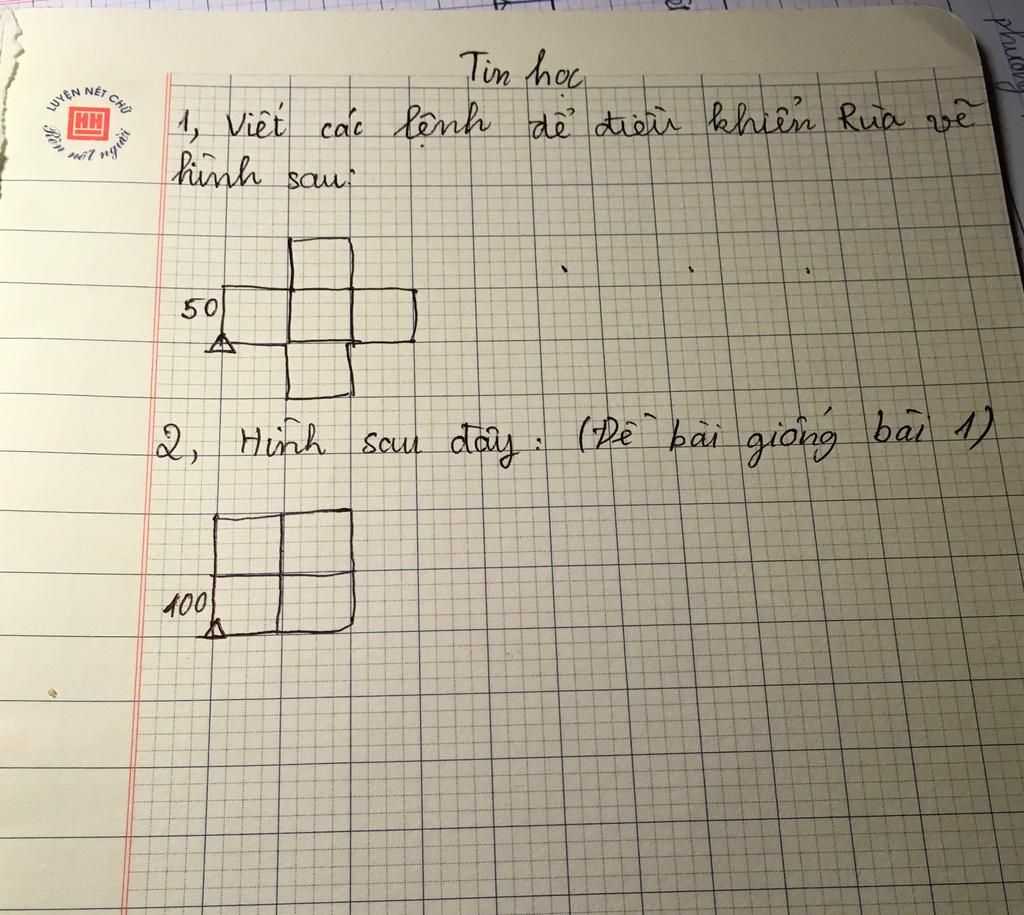 Tin học
LUYỆN NÉT CHỮ
HH
Rèn nết người
1, Viết các lệnh để điều khiển Rùa vẽ
hình sau:
50
2, Hình sau đây: (Đề bài giống bài 1)
100
phương